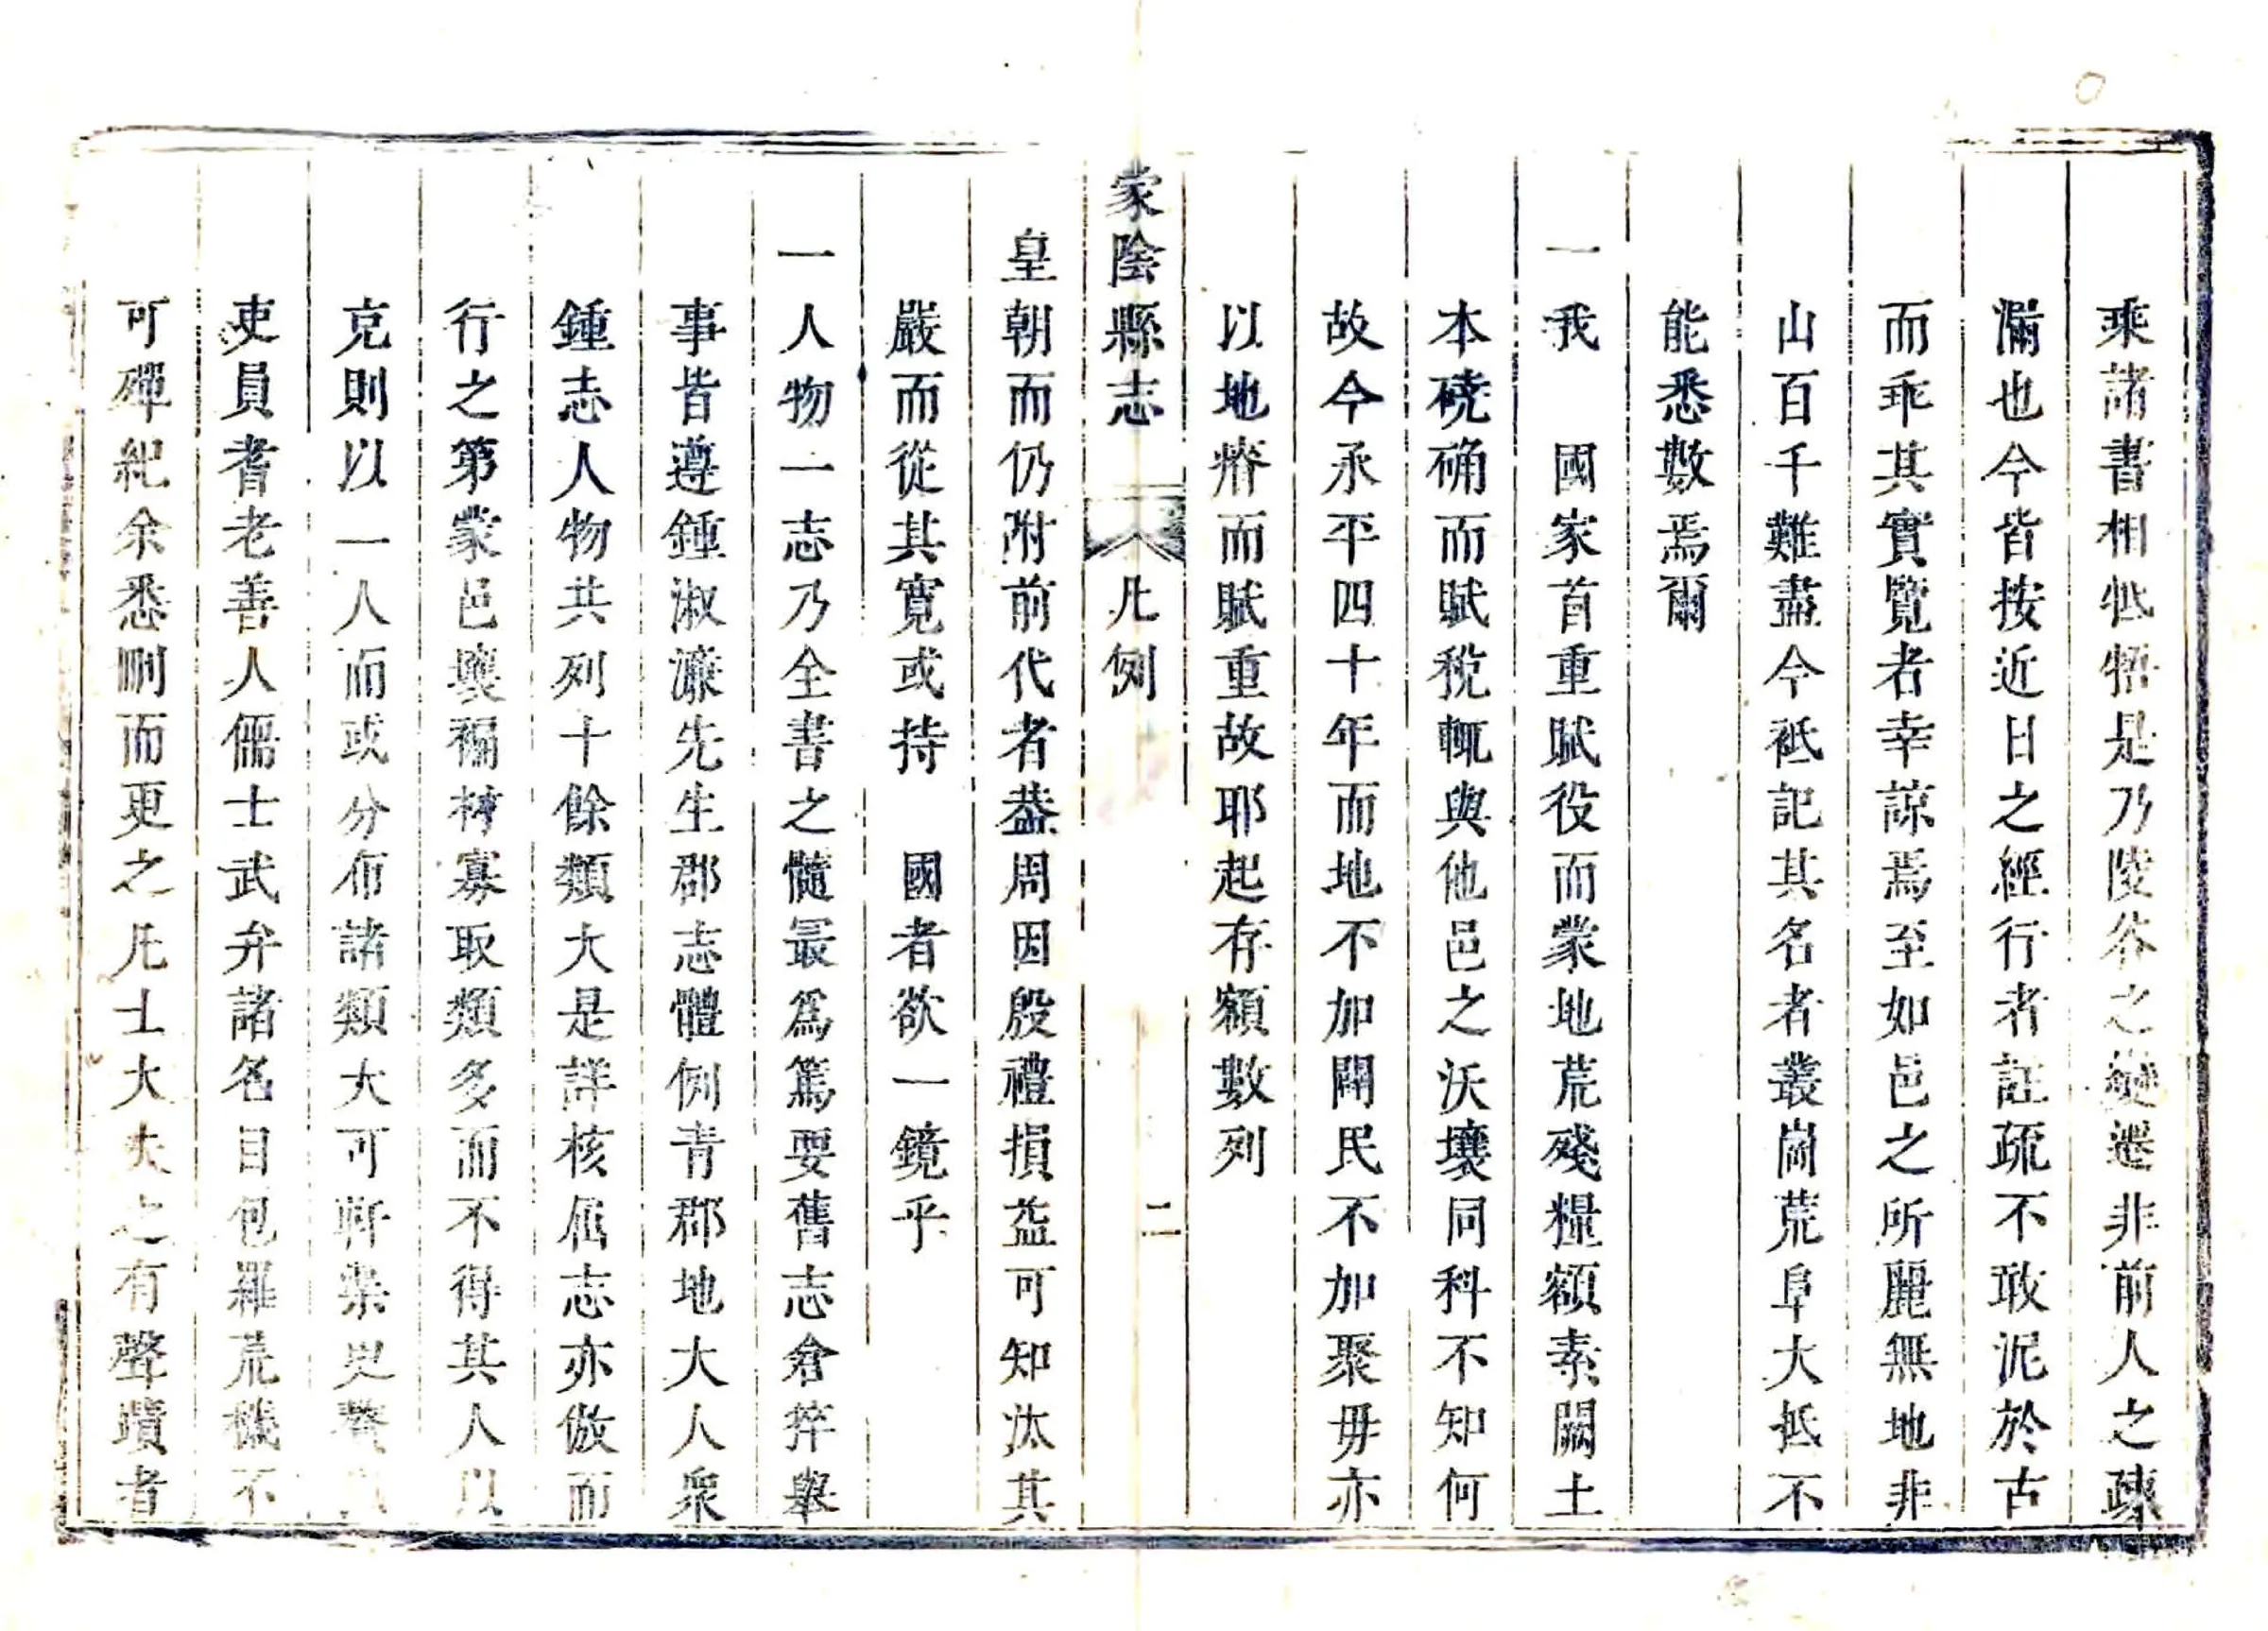 乘諸書相牴牾是乃陵谷之變遷非前人之疎
漏也今皆按近日之經行者註疏不敢泥於古
而乖其實覽者幸諒焉至如邑之所麗無地非
山百千難盡今祗記其名者叢崗荒阜大抵不
能悉數焉爾
一我　國家首重賦役而蒙地荒殘糧額素闕土
本磽确而賦稅輒與他邑之沃壤同科不知何
故今承平四十年而地不加闢民不加聚毋亦
以地瘠而賦重故耶起存額數列
蒙陰縣志　凡例　二
皇朝而仍附前代者葢周因殷禮損益可知汰其
嚴而從其寛或持　國者欲一鏡乎
一人物一志乃全書之髓最爲篤要舊志倉猝舉
事皆遵鍾淑濂先生郡志體例青郡地大人衆
鍾志人物共列十餘類大是詳核屆志亦倣而
行之第蒙邑壤褊材寡取類多而不得其人以
克則以一人而或分布諸類大可軒渠更
吏員耆老善人儒士武弁諸名目包羅荒穢不
可殫紀余悉刪而更之凡士大夫之有聲蹟者